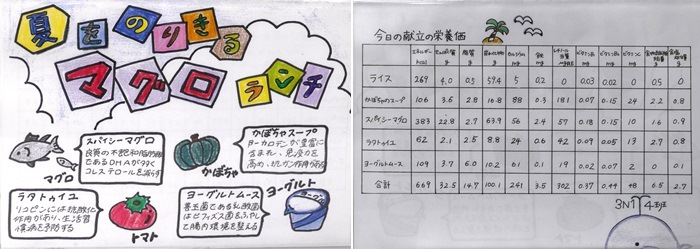 夏をのりきる
マグロランチ
スパイシーマグロ
良質の不飽和脂肪酸
であるDHAが多く
コレステロールを減らす
マグロ
かぼちゃスープ
β-カロテンが豊富に
含まれ、免疫力を
高め、抗ガン作用がある
かぼちゃ
ラタトゥイユ
リコピンには抗酸化
作用があり、生活習
慣病を予防する
トマト
ヨーグルトムース
善玉菌である乳酸菌
はビフィズス菌をふやし
て腸内環境を整える
ヨーグルト
今日の献立の栄養価
エネルギー kcal たんぱく質 g 脂質 g 炭水化物 g カルシウム mg 鉄 mg ビタミンB1 mg ビタミンB2 mg ビタミンC mg 食物繊維総量 g
ライス 269 4.0 0.5 59.4 5 0.2 0 0.03 0.02 0 0.5 0
かぼちゃのスープ 106 3.6 2.8 16.8 88 0.3 181 0.07 0.15 24 2.2 0.8
スパイシーマグロ 383 22.8 2.7 63.9 56 2.4 57 0.18 0.16 10 1.6 0.9
ラタトゥイユ 62 2.1 2.5 8.8 24 0.6 42 0.09 0.05 13 2.7 0.8
ヨーグルトムース 109 3.7 6.0 10.2 61 0.1 19 0.02 0.07 2 0.1
合計 669 32.5 14.7 100.1 241 3.5 302 0.37 0.44 48 6.5 2.7
3N1 4班